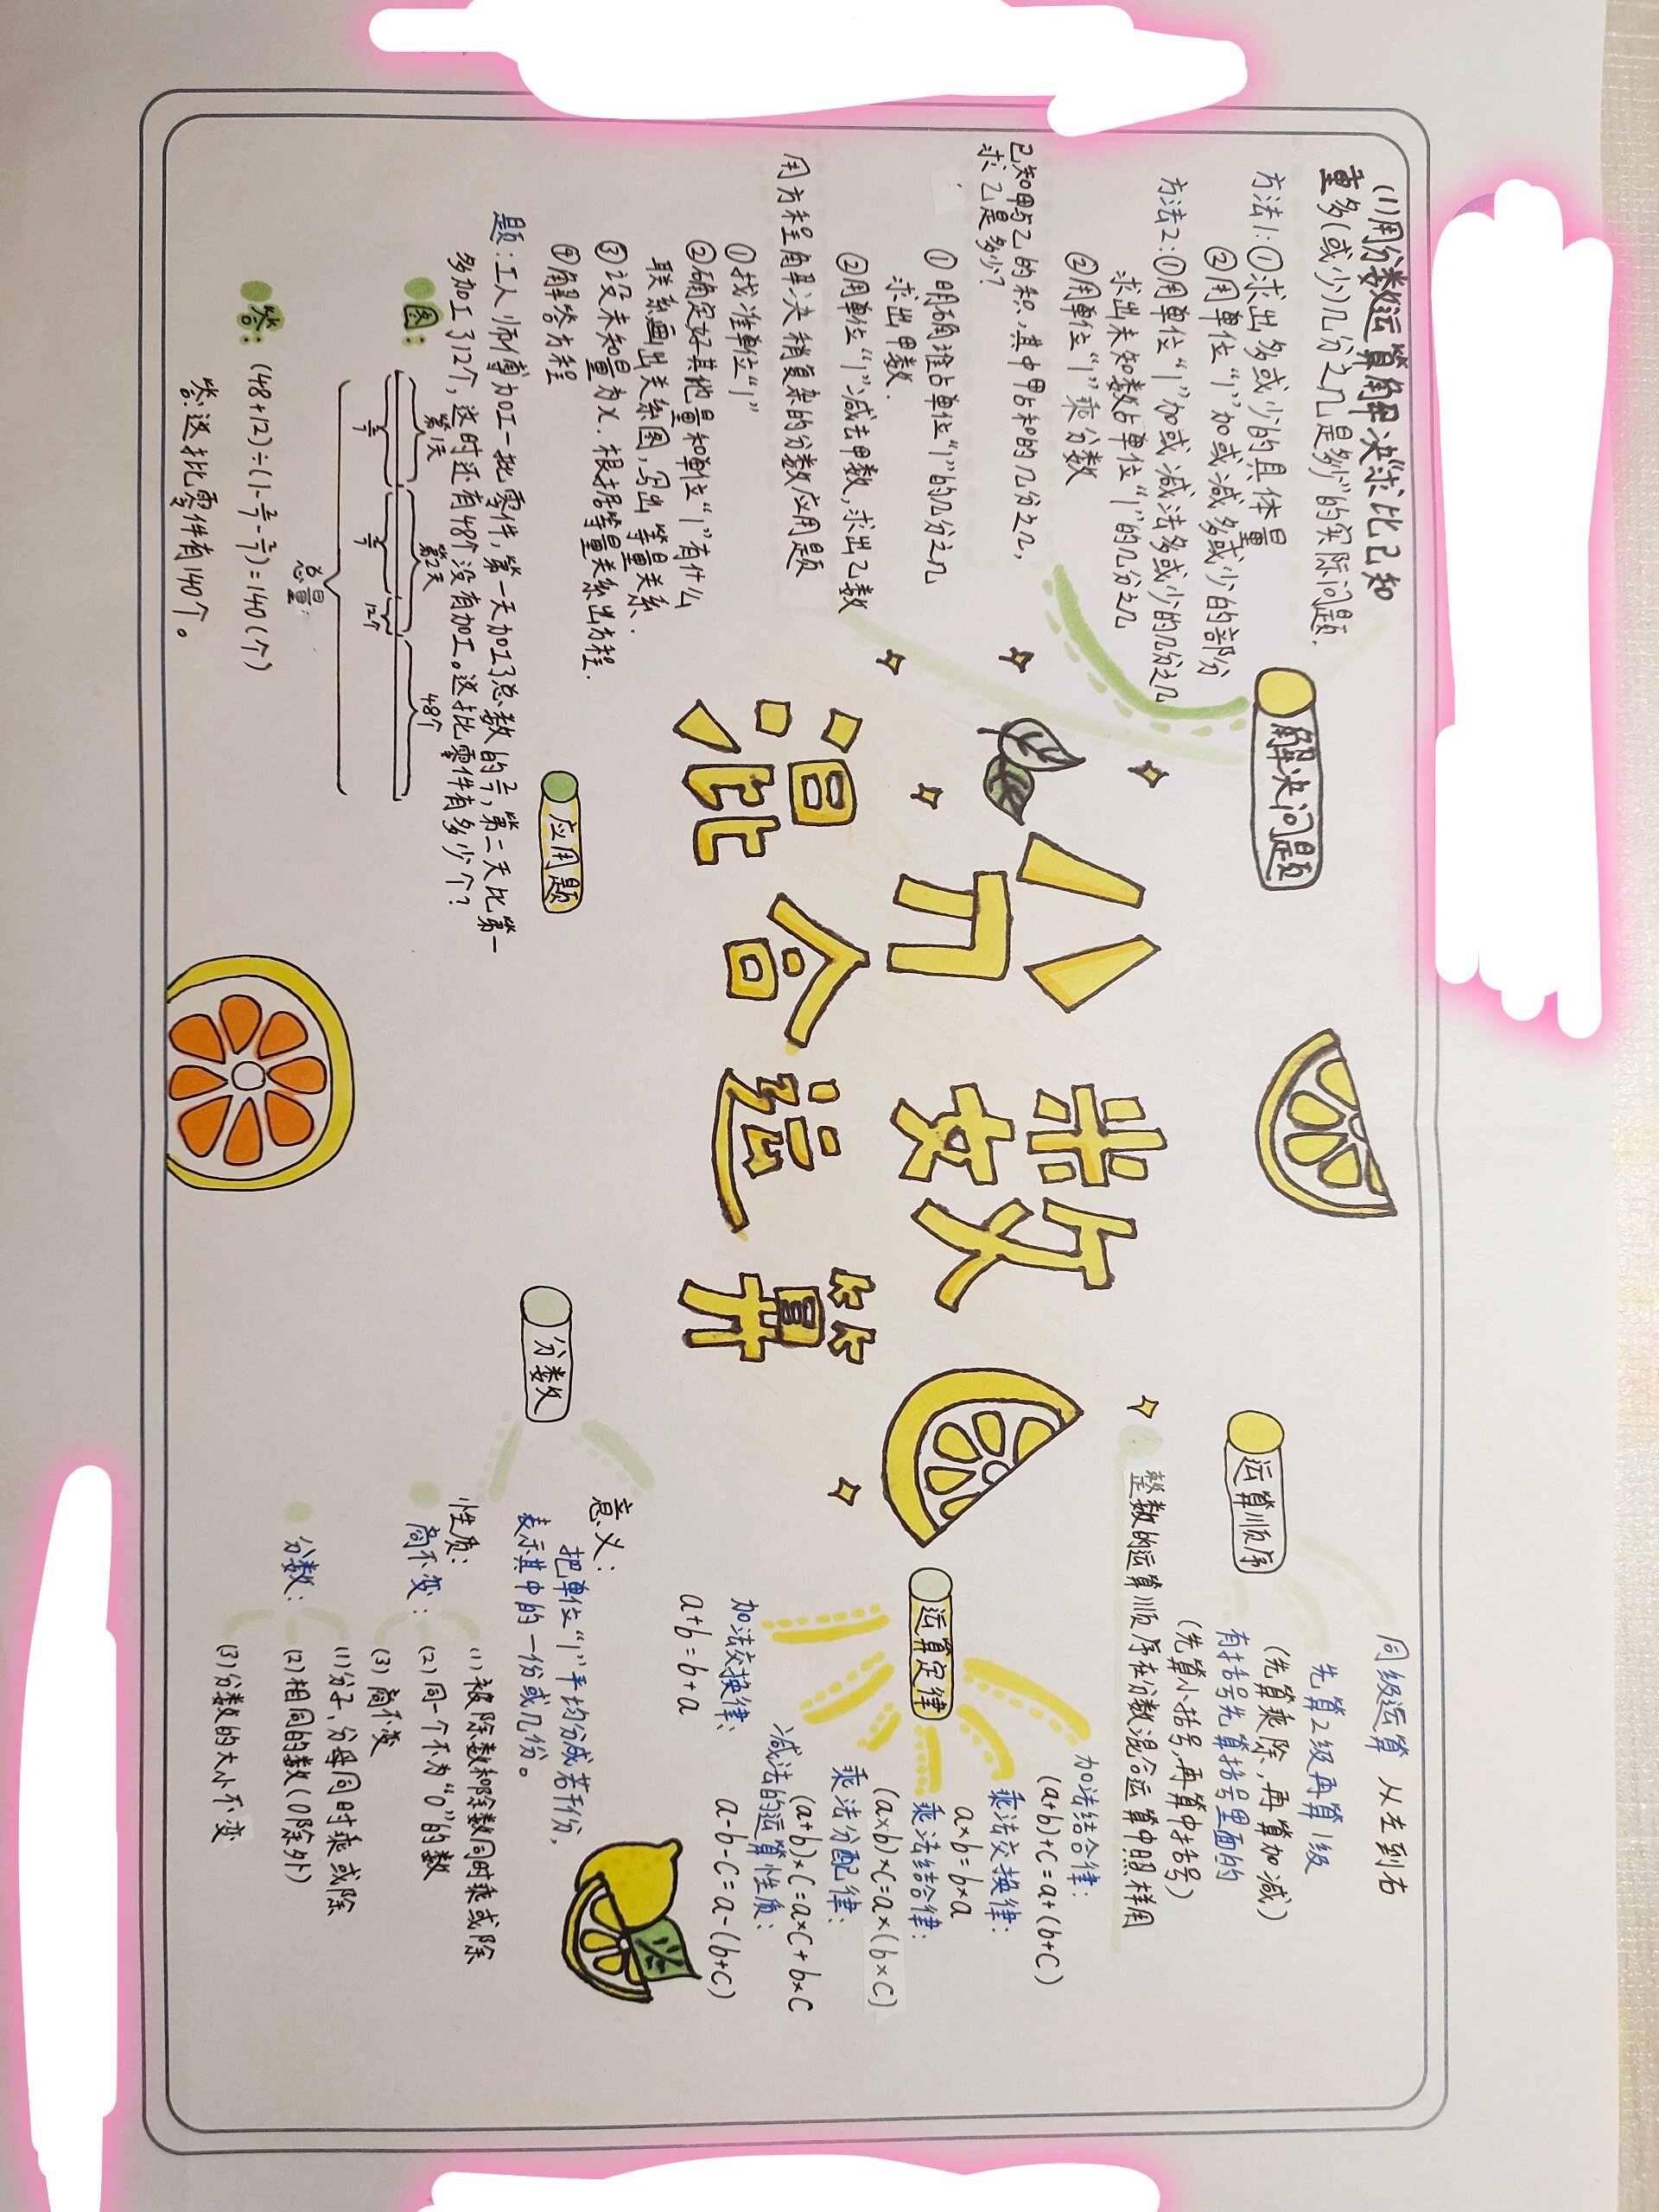 分数
混合运算
解决问题
(1)用分数运算解决“求比已知
量多(或少)几分之几是多少”的实际问题.
方法1:①求出多或少的具体量
②用单位“1”加或减多或少的部分
方法2:①用单位“1”加或减法多或少的几分之几
求出未知数占单位“1”的几分之几
②用单位“1”乘分数
已知甲与乙的和,其中甲占和的几分之几,
求乙是多少?
①明确谁占单位“1”的几分之几
求出甲数.
②用单位“1”减去甲数,求出乙数
用方程解决稍复杂的分数应用题
①找准单位“1”
②确定好其他量和单位“1”有什么
联系画出关系图,写出等量关系.
③设未知量为x.根据等量关系出方程.
④解答方程
应用题
题:工人师傅加工一批零件,第一天加工了总数的2/7,第二天比第一
多加工了12个,这时还有48个没有加工。这批零件有多少个?
图:
第1天 第2天 48个
2/7 2/7 12个
总量:
答:(48+12)÷(1-2/7-2/7)=140(个)
答:这批零件有140个。
运算顺序
同级运算 从左到右
先算2级再算1级
(先算乘除,再算加减)
有括号先算括号里面的
(先算小括号,再算中括号)
整数的运算顺序在分数混合运算中照样用
运算定律
加法结合律:
(a+b)+c=a+(b+c)
乘法交换律:
a×b=b×a
乘法结合律:
(a×b)×c=a×(b×c)
乘法分配律:
(a+b)×c=a×c+b×c
减法的运算性质:
a-b-c=a-(b+c)
加法交换律:
a+b=b+a
分数
意义:
把单位“1”平均分成若干份,
表示其中的一份或几份。
性质:
商不变:
(1)被除数和除数同时乘或除
(2)同一个不为“0”的数
(3)商不变
分数:
(1)分子、分母同时乘或除
(2)相同的数(0除外)
(3)分数的大小不变